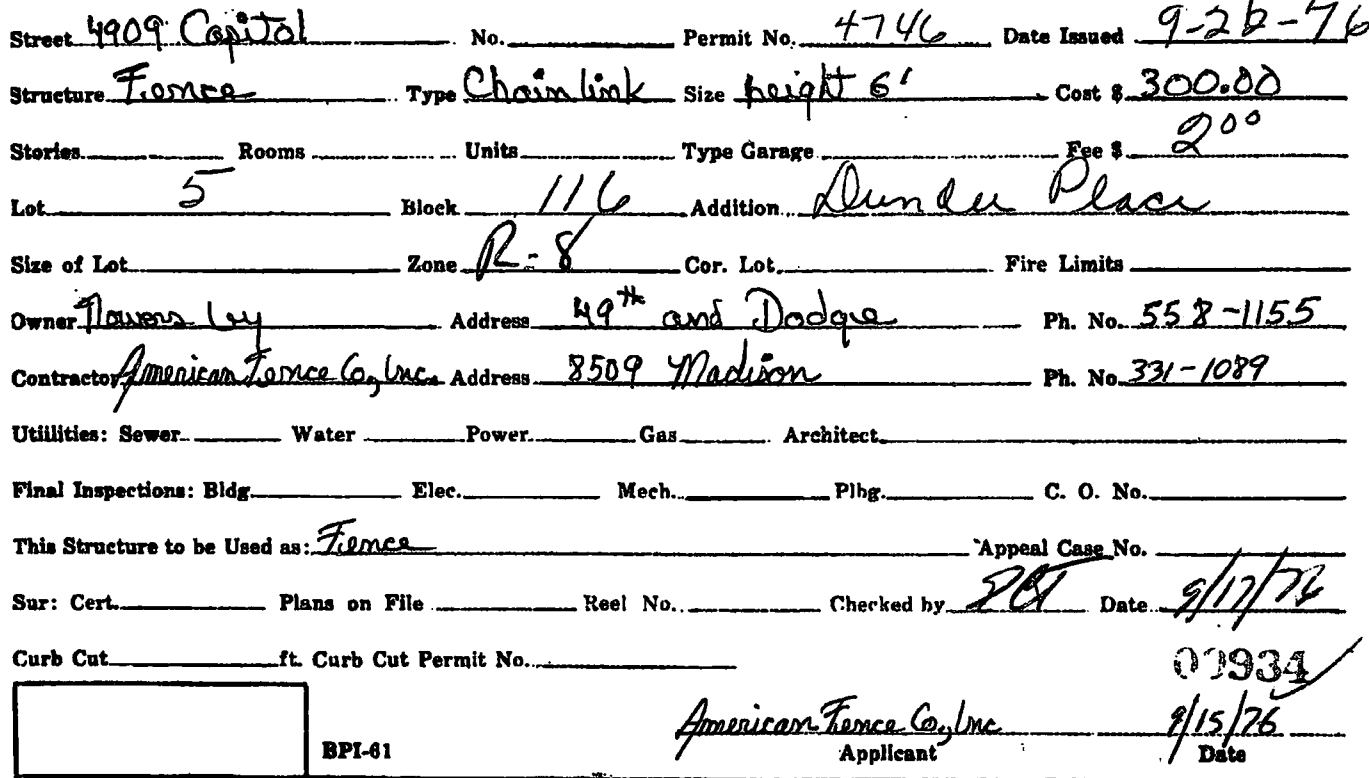 Street 4909 Capitol No. Permit No. 4746 Date Issued 9-22-76
Structure Fence Type Chain link Size height 6' Cost $ 300.00
Stories Rooms Units Type Garage Fee $ 2 00
Lot 5 Block 116 Addition Dundee Place
Size of Lot Zone R-8 Cor. Lot Fire Limits
Owner Flowers by Address 49th and Dodge Ph. No. 558-1155
Contractor American Fence Co., Inc. Address 8509 Madison Ph. No. 331-1089
Utiilities: Sewer Water Power Gas Architect
Final Inspections: Bldg. Elec. Mech. Plbg. C. O. No.
This Structure to be Used as: Fence Appeal Case No.
Sur: Cert. Plans on File Reel No. Checked by Date 9/17/76
Curb Cut ft. Curb Cut Permit No.
00934
American Fence Co., Inc 9/15/76
BPI-61 Applicant Date